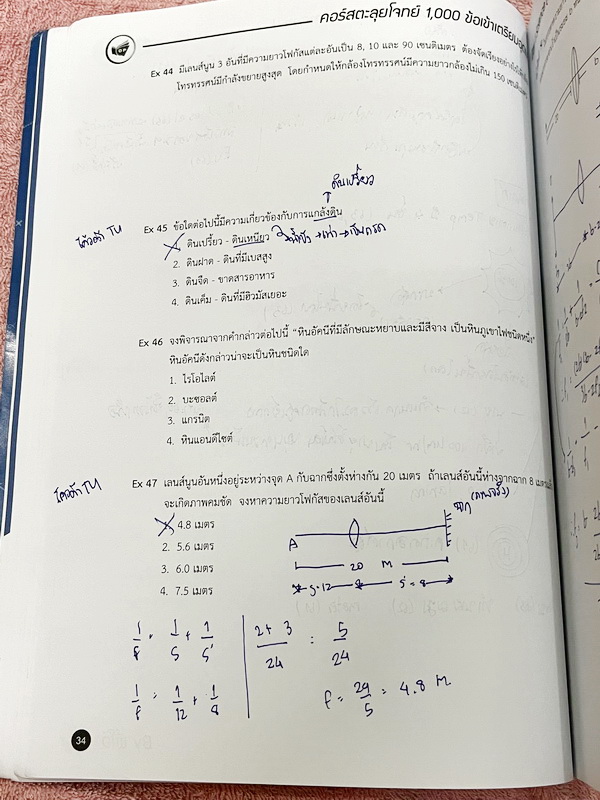 คอร์สตะลุยโจทย์ 1,000 ข้อเข้าเตรียมอุดม
Ex 44 มีเลนส์นูน 3 อันที่มีความยาวโฟกัสแต่ละอันเป็น 8, 10 และ 90 เซนติเมตร ต้องจัดเรียงอย่างไร
โทรทรรศน์มีกำลังขยายสูงสุด โดยกำหนดให้กล้องโทรทรรศน์มีความยาวกล้องไม่เกิน 150 เซนติเมตร
ดินเปรี้ยว
↑
Ex 45 ข้อใดต่อไปนี้มีความเกี่ยวข้องกับการแกล้งดิน
1. ดินเปรี้ยว - ดินเหนียว
2. ดินฝาด - ดินที่มีเบสสูง
3. ดินจืด - ขาดสารอาหาร
4. ดินเค็ม - ดินที่มีฮิวมัสเยอะ
Ex 46 จงพิจารณาจากคำกล่าวต่อไปนี้ "หินอัคนีที่มีลักษณะหยาบและมีสีจาง เป็นหินภูเขาไฟชนิดหนึ่ง"
หินอัคนีดังกล่าวน่าจะเป็นหินชนิดใด
1. ไรโอไลต์
2. บะซอลต์
3. แกรนิต
4. หินแอนดีไซต์
Ex 47 เลนส์นูนอันหนึ่งอยู่ระหว่างจุด A กับฉากซึ่งตั้งห่างกัน 20 เมตร ถ้าเลนส์อันนี้ห่างจากฉาก 8 เมตร
จะเกิดภาพคมชัด จงหาความยาวโฟกัสของเลนส์อันนี้
1. 4.8 เมตร
2. 5.6 เมตร
3. 6.0 เมตร
4. 7.5 เมตร
ฉาก
A
20 M
S=12 S'=8
1/f = 1/S + 1/S'
1/f = 1/12 + 1/8
2+3/24 = 5/24
f = 24/5 = 4.8 M
34